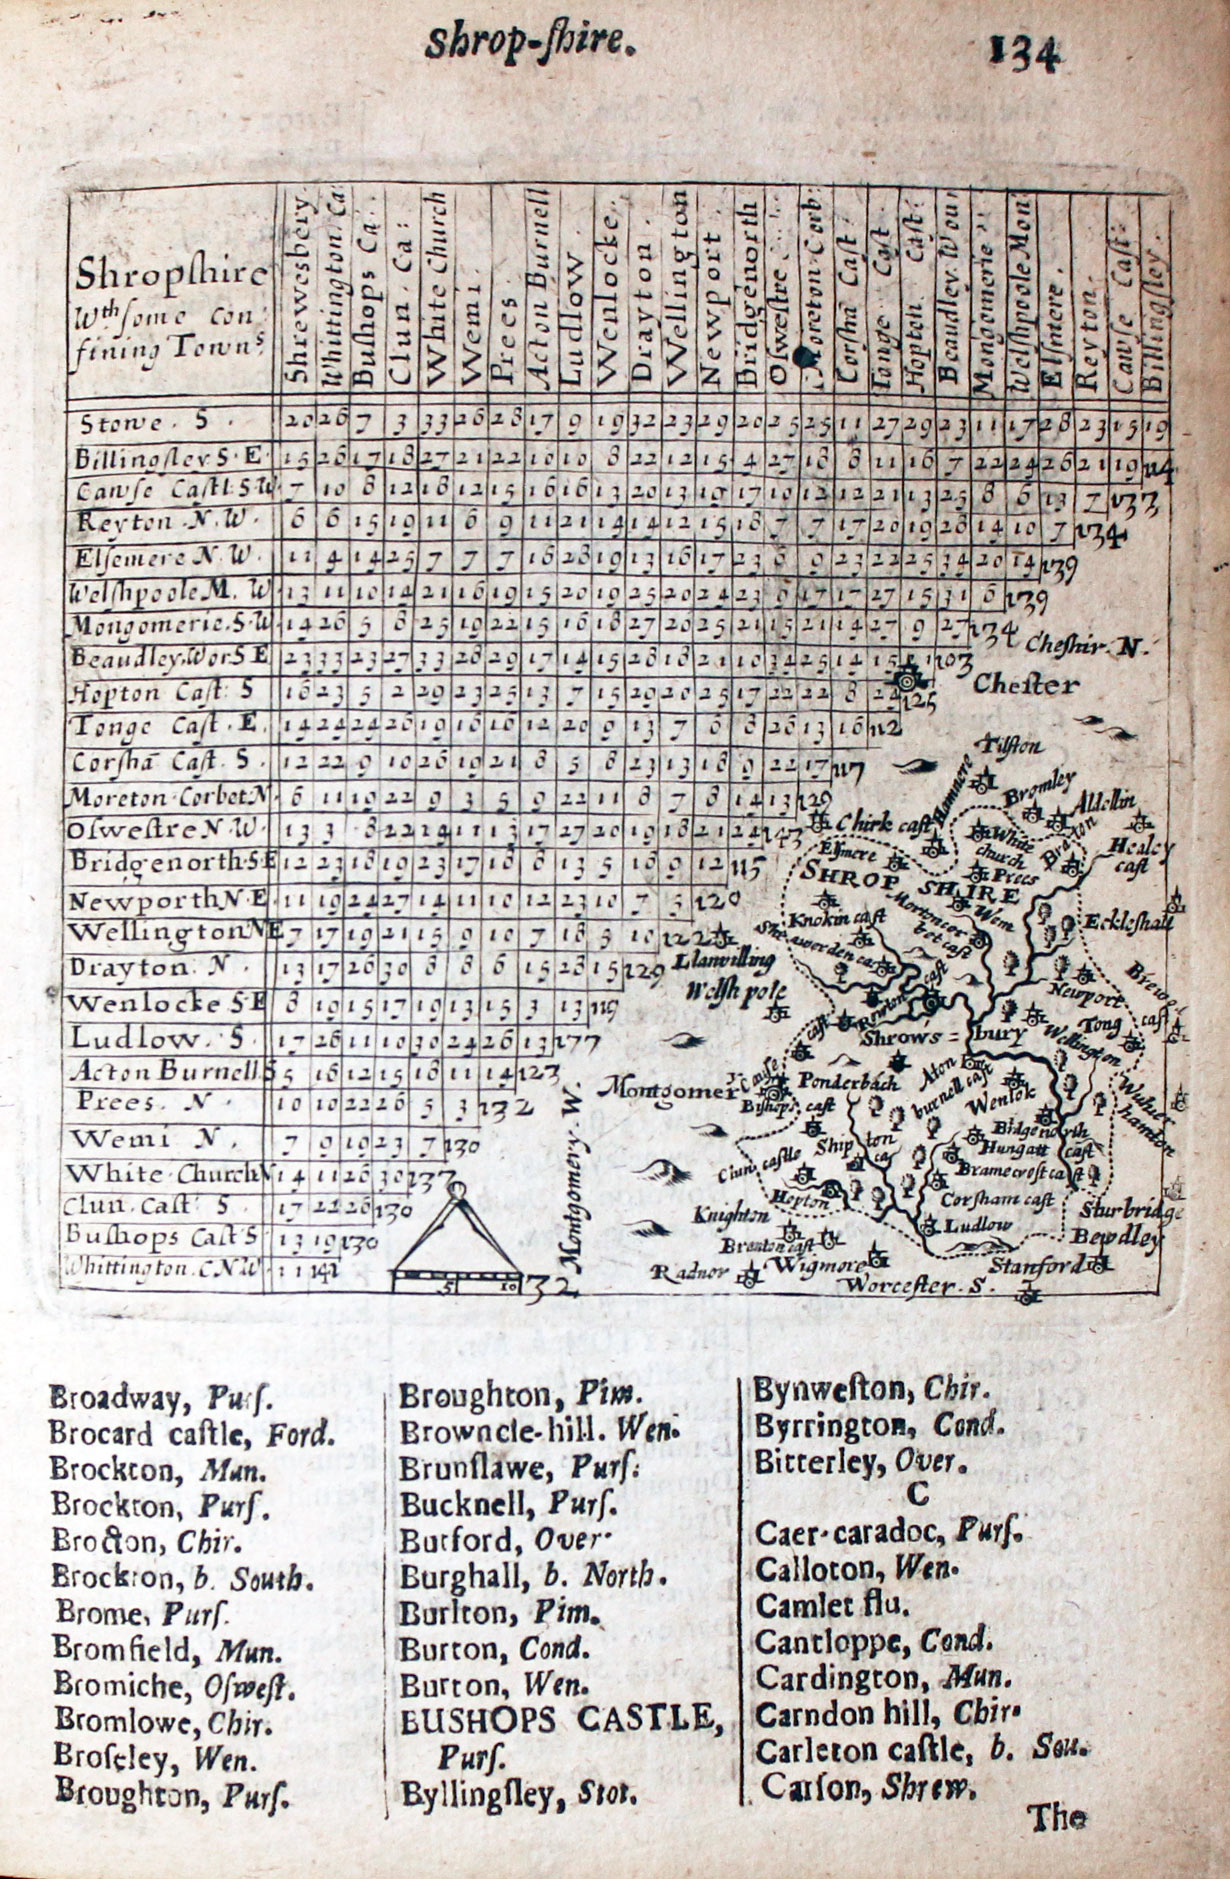 Shrop-ſhire.
134
Shropſhire
Wth ſome con
fining Towns
Shrewsbery
Whittington Ca
Buſhops Ca
Clun Ca:
White Church
Wemi
Prees
Acton Burnell
Ludlow
Wenlocke
Drayton
Wellington
Newport
Bridgenorth
Oſweſtre
Moreton Corb:
Corſhā Caſt
Tonge Caſt
Hopton Caſt:
Beaudley Wour
Mongomerie
Welſhpoole Mon
Elſmere
Reyton
Cawſe Caſt:
Billingſley
Stowe. S. 20 26 7 3 33 26 28 17 9 19 32 23 29 20 25 25 11 27 29 23 11 17 28 23 15 19
Billingſley S. E. 15 26 17 18 27 21 22 10 10 8 22 12 15 4 27 18 8 11 16 7 22 24 26 21 19 114
Cawſe Caſtl S. W 7 10 8 12 18 12 15 16 16 13 20 13 19 17 10 12 12 21 13 25 8 6 13 7 133
Reyton N. W. 6 6 15 19 11 6 9 11 21 14 14 12 15 18 7 7 17 20 19 28 14 10 7 134
Elſemere N. W. 11 4 14 25 7 7 7 18 28 19 13 16 17 23 8 9 23 22 25 34 20 14 139
Welſhpoole M. W 13 11 10 14 21 16 19 15 20 19 25 20 24 23 9 17 17 27 15 31 6 139
Mongomerie S. W 14 26 5 8 25 19 22 15 16 18 27 20 25 21 15 21 14 27 9 27 134
Beaudley Wor S E 23 33 23 27 33 28 29 17 14 15 28 18 21 10 34 25 14 15 103
Hopton Caſt: S 16 23 5 2 29 23 25 13 7 15 29 20 25 17 22 22 8 24 125
Tonge Caſt. E. 14 24 24 26 19 16 16 12 20 9 13 7 6 8 26 13 16 112
Corſhā Caſt. S. 12 22 9 10 26 19 21 8 5 8 23 13 18 9 22 17 117
Moreton Corbet N 6 11 19 22 9 3 5 9 22 11 8 7 8 14 13 129
Oſweſtre N. W. 13 3 8 22 14 11 13 17 27 20 19 18 21 24 143
Bridgenorth S E 12 23 18 19 23 17 18 8 13 5 18 9 12 115
Newporth N. E 11 19 24 27 14 11 10 12 23 10 7 5 120
Wellington N E 7 17 19 21 15 9 10 7 18 5 10 122
Drayton. N. 13 17 26 30 8 8 6 15 28 15 129
Wenlocke S E 8 19 15 17 19 13 15 3 13 119
Ludlow. S. 17 26 11 10 30 24 26 13 177
Acton Burnell S 5 16 12 15 18 11 14 123
Prees. N. 10 10 22 26 5 3 132
Wemi N. 7 9 19 23 7 130
White Church N 14 11 26 30 137
Clun. Caſt: S. 17 22 26 130
Buſhops Caſt S 13 19 130
Whittington. C N W 11 141
5 10 32
Montgomery. W.
Cheſhir. N.
Cheſter
Tilſton
Hanmere
Bromley
Aldelin
Chirk caſt
White church
Braton
Healey caſt
Elſmere
Prees
SHROP SHIRE
Mortencor bet caſt
Wem
Knokin caſt
Eckleſhall
Shrawerden ca
Llanvilling
Welſh pole
Newport
Brewe
caſt
Rowton caſt
Shrows=bury
Tong
Wellington
Cauſe caſt
Montgomer
Ponderbach
Aton burnell caſt
Wenlok
Wulner hamton
Biſhops caſt
Bidgenorth
Hungatt caſt
Shipton ca
Clun caſtle
Bramcroſt caſt
Hopton
Corſham caſt
Sturbridge
Knighton
Ludlow
Branton caſt
Bewdley
Radnor
Wigmore
Stanford
Worceſter. S.
Broadway, Purſ.
Brocard caſtle, Ford.
Brockton, Mun.
Brockton, Purſ.
Brocton, Chir.
Brockton, b. South.
Brome, Purſ.
Bromfield, Mun.
Bromiche, Oſweſt.
Bromlowe, Chir.
Broſeley, Wen.
Broughton, Purſ.
Broughton, Pim.
Browncle-hill. Wen.
Brunſlawe, Purſ:
Bucknell, Purſ.
Butford, Over.
Burghall, b. North.
Burlton, Pim.
Burton, Cond.
Burton, Wen.
BUSHOPS CASTLE,
Purſ.
Byllingſley, Stot.
Bynweſton, Chir.
Byrrington, Cond.
Bitterley, Over.
C
Caer-caradoc, Purſ.
Calloton, Wen.
Camlet flu.
Cantloppe, Cond.
Cardington, Mun.
Carndon hill, Chir.
Carleton caſtle, b. Sou.
Carſon, Shrew.
The